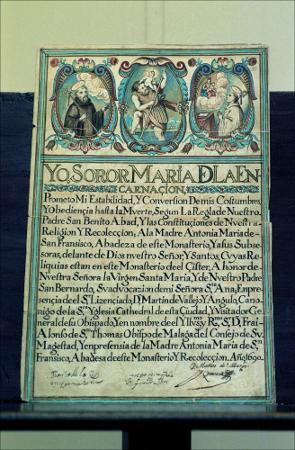 YO SOROR MARÍA DLA EN
CARNAÇION,
Prometo Mi Estabilidad, Y Conversion De mis Costumbres,
Y Obediencia hasta la Mverte, Segun La Regla de Nuestro
Padre San Benito Abad, Y las Constituciones de Nvestra
Religion Y Recoleccion; A la Madre Antonia Maria de
San Fransisco, Abadeza de este Monasterio, Ya sus Subse
soras, delante de Dios nvestro Señor, Y Santos, Cvyas Re
liquias estan en este Monasterio del Cister, A honor de
Nvestra Señora la Virgen Santa Maria, Y de Nvestro Padre
San Bernardo, Svadvocasion de mi Señora Sta Ana; En pre
sencia del Sr Licenciado, D. Martin de Vallejo Y Angulo, Cano
nigo de la Sta Yglesia Cathedral de esta Ciudad, Y Visitador Ge
neral de su Obispado, Y en nombre del Yllmo Y Rmo Sr D. Frai
Alonso de Sto Thomas Obispo de Malaga del Consejo de Sv
Magestad, Y en presensia de la Madre Antonia Maria de Sn
Fransisco, Abadesa de este Monasterio Y Recoleccion. Año, 1690.